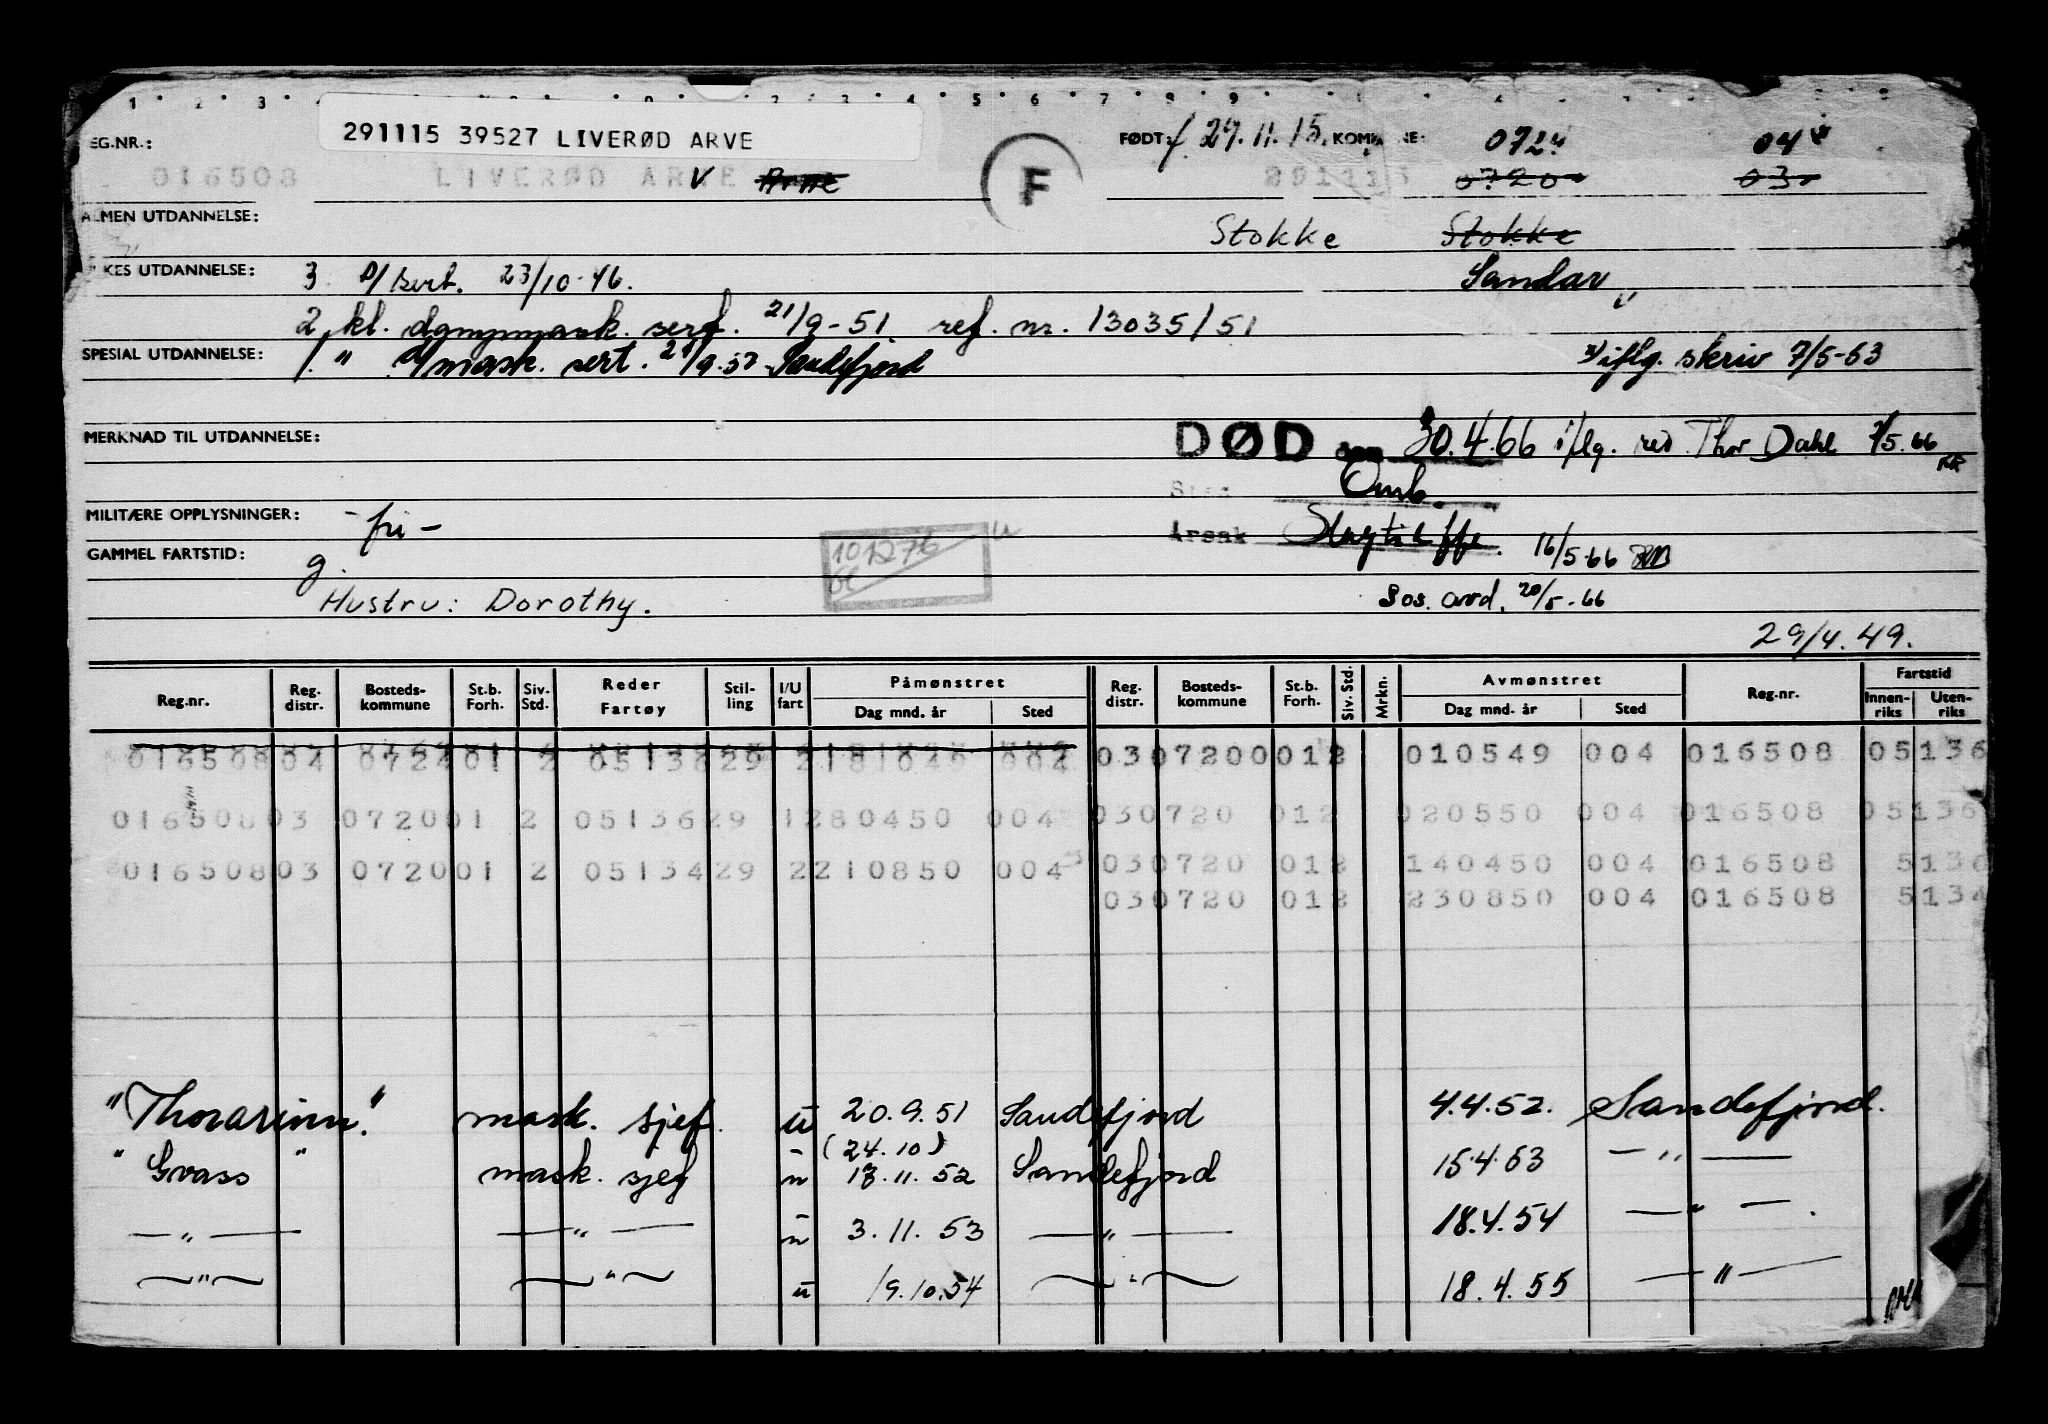 291115 39527 LIVERØD ARVE
EG.NR.:
FØDT: f. 29.11.15. KOMMUNE: 0724 04
016508 LIVERØD ARVE V F 291115 0720 03
ALMEN UTDANNELSE:
Stokke Stokke
KES UTDANNELSE: 3 D/sert. 23/10-46. Sandar
2 kl. dampmask. serf. 21/9-51 ref. nr. 13035/51
SPESIAL UTDANNELSE: 1. " D/mask. sert. 21/9.57 Sandefjord
x) iflg. skriv 7/5-63
MERKNAD TIL UTDANNELSE:
DØD den 30.4.66 iflg. red Thor Dahl 7/5.66
Sted Omb.
MILITÆRE OPPLYSNINGER: - fri -
Årsak Slagtilffe. 16/5-66
GAMMEL FARTSTID: g.
101276
Hustru: Dorothy.
Sos. avd. 20/5-66
29/4.49.
Reg.nr. Reg. distr. Bosteds- kommune St.b. Forh. Siv. Std. Reder Fartøy Stil- ling I/U fart Påmønstret Dag mnd. år Sted Reg. distr. Bosteds- kommune St.b. Forh. Siv. Std. Mrkn. Avmønstret Dag mnd. år Sted Reg.nr. Fartstid Innen- riks Uten- riks
016508 04 0724 01 2 05136 29 2 181049 004 03 07200 01 2 010549 004 016508 05136
016508 03 0720 01 2 05136 29 1 280450 004 03 0720 01 2 020550 004 016508 05136
016508 03 0720 01 2 05134 29 2 210850 004 03 0720 01 2 140450 004 016508 5136
03 0720 01 2 230850 004 016508 5134
"Thorarinn." mask. sjef. u 20.9.51 Sandefjord 4.4.52. Sandefjord.
(24.10)
" Gvass " mask. sjef u 17.11.52 Sandefjord 15.4.53 — " —
— " — — " — u 3.11.53 — " — 18.4.54 — " — .
— " — — " — u 19.10.54 — " — 18.4.55 — " —